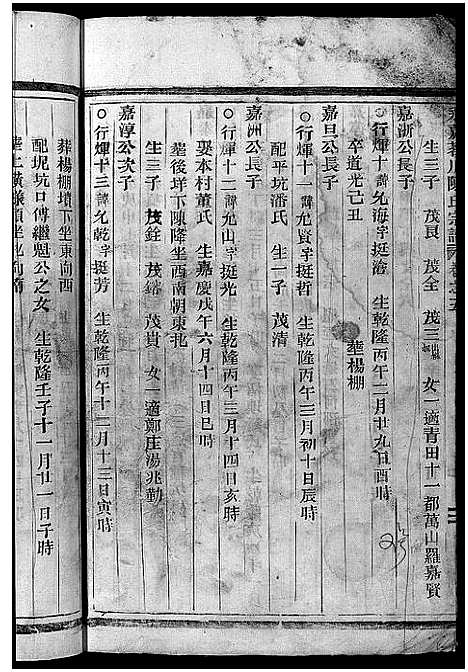 陳氏宗譜 卷之五
生三子 茂良 茂全 茂三 女一適青田十一都萬山羅嘉賢
嘉浙公長子
○行煇十諱允海字挺滄 生乾隆丙午二月廿九日酉時
卒道光己丑 塟楊棚
嘉旦公長子
○行煇十一諱允賢字挺哲 生乾隆丙午三月初十日辰時
配平坑潘氏 生一子 茂清
嘉洲公長子
○行煇十二諱允山字挺光 生乾隆丙午三月十四日亥時
娶本村董氏 生嘉慶戊午六月十四日巳時
塟後垟下陳隆坐西南朝東北
生三子 茂銓 茂鎔 茂貴 女一適鄭庄湯兆勤
嘉淳公次子
○行煇十三諱允乾字挺芳 生乾隆丙午十二月十三日寅時
塟楊棚墳下坐東向西
配坭坑口傅繼魁公之女 生乾隆壬子十一月廿一日子時
塟上橫塽頭坐北向南